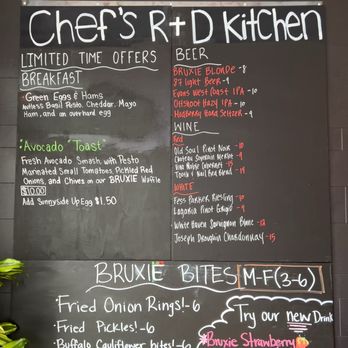 Chef's R+D Kitchen
LIMITED TIME OFFERS
BREAKFAST
Green Eggs & Hams
Nutless Basil Pesto, Cheddar, Mayo
Ham, and an overhard egg
Avocado "Toast"
Fresh Avocado Smash with Pesto
Marinated Small Tomatoes, Pickled Red
Onions, and Chives on our BRUXIE Waffle
$10.00
Add Sunnyside Up Egg $1.50
BEER
BRUXIE BLONDE -8
87 light Beer -9
Evans West Coast IPA -10
Offshoot Hazy IPA -10
Hard Seltzer -9
WINE
Red
Old Soul Pinot Noir -10
Chateau Souverain Merlot -9
Cabernet -15
Tooth & Nail Red Blend -19
WHITE
Fess Parker Riesling -10
Lagaria Pinot Grigio -9
White Haven Sauvignon Blanc -12
Joseph Drouhin Chardonnay -15
BRUXIE BITES M-F(3-6)
Fried Onion Rings!-6
Fried Pickles!-6
Buffalo Cauliflower bites!-6
Try our new Drink
Bruxie Strawberry